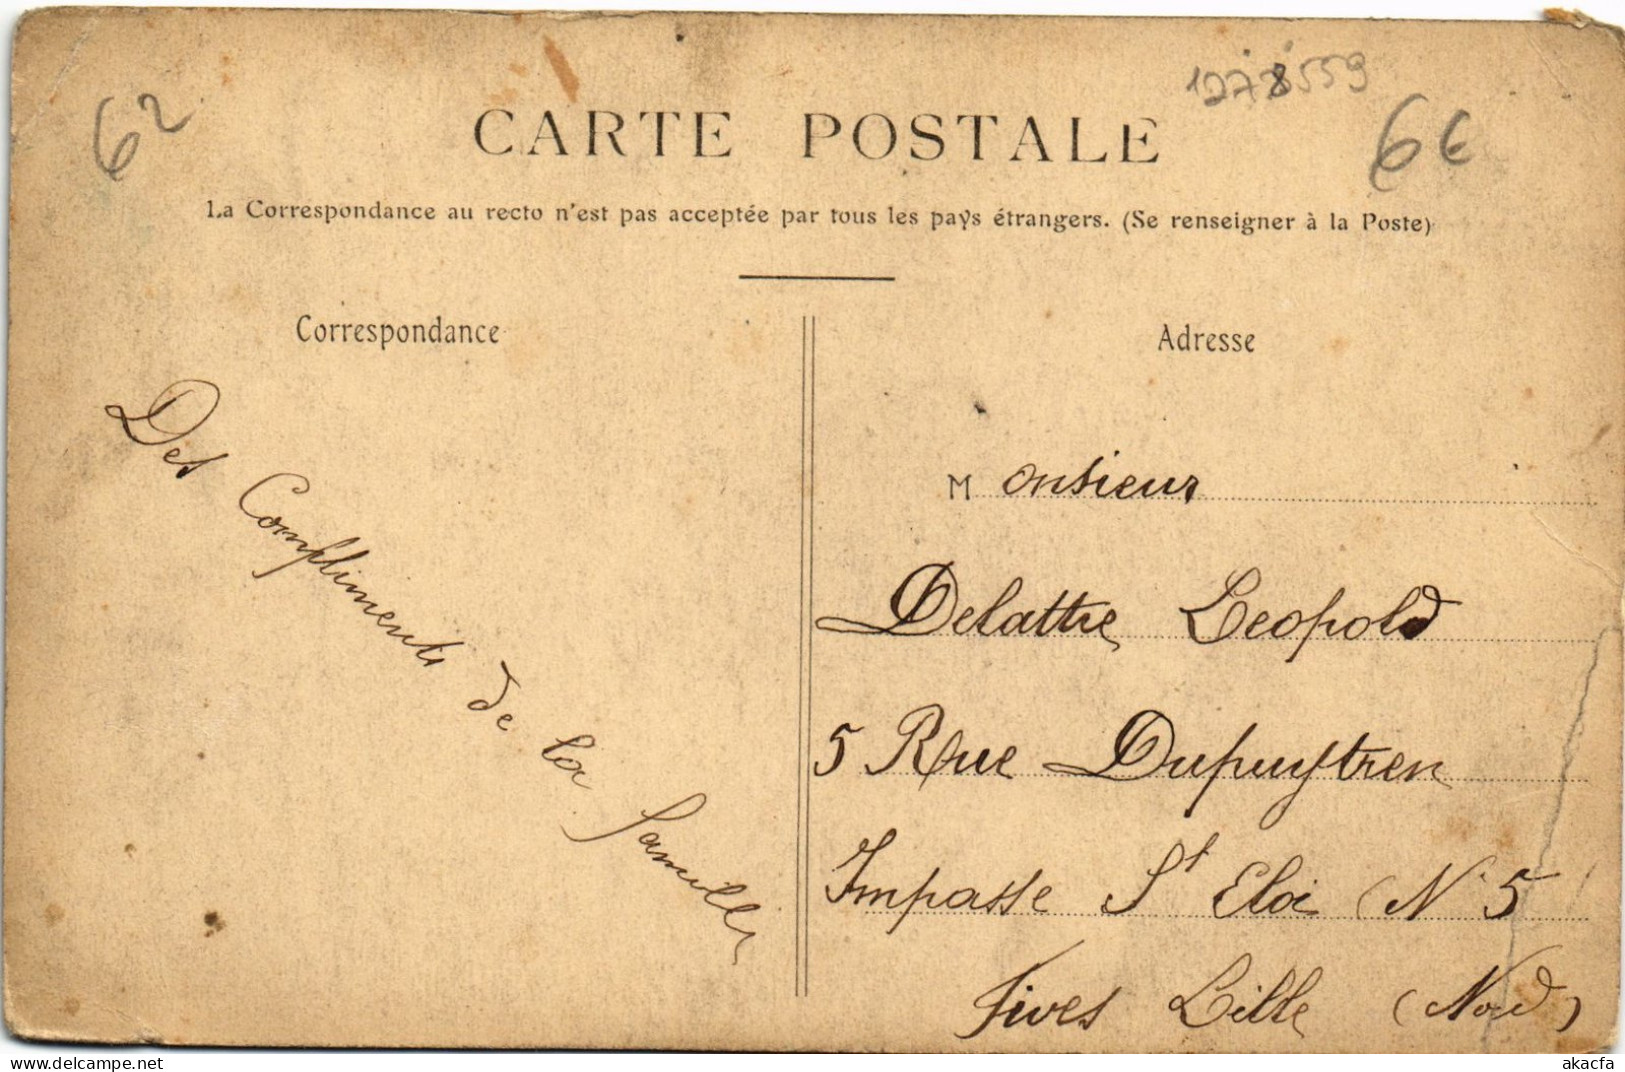 62
1278559
6€
CARTE POSTALE
La Correspondance au recto n'est pas acceptée par tous les pays étrangers. (Se renseigner à la Poste)
Correspondance
Des Compliments de la famille
Adresse
Monsieur
Delattre Leopold
5 Rue Dupuytren
Impasse St Eloi (N° 5)
Fives Lille (Nord)
www.delcampe.net
akacfa